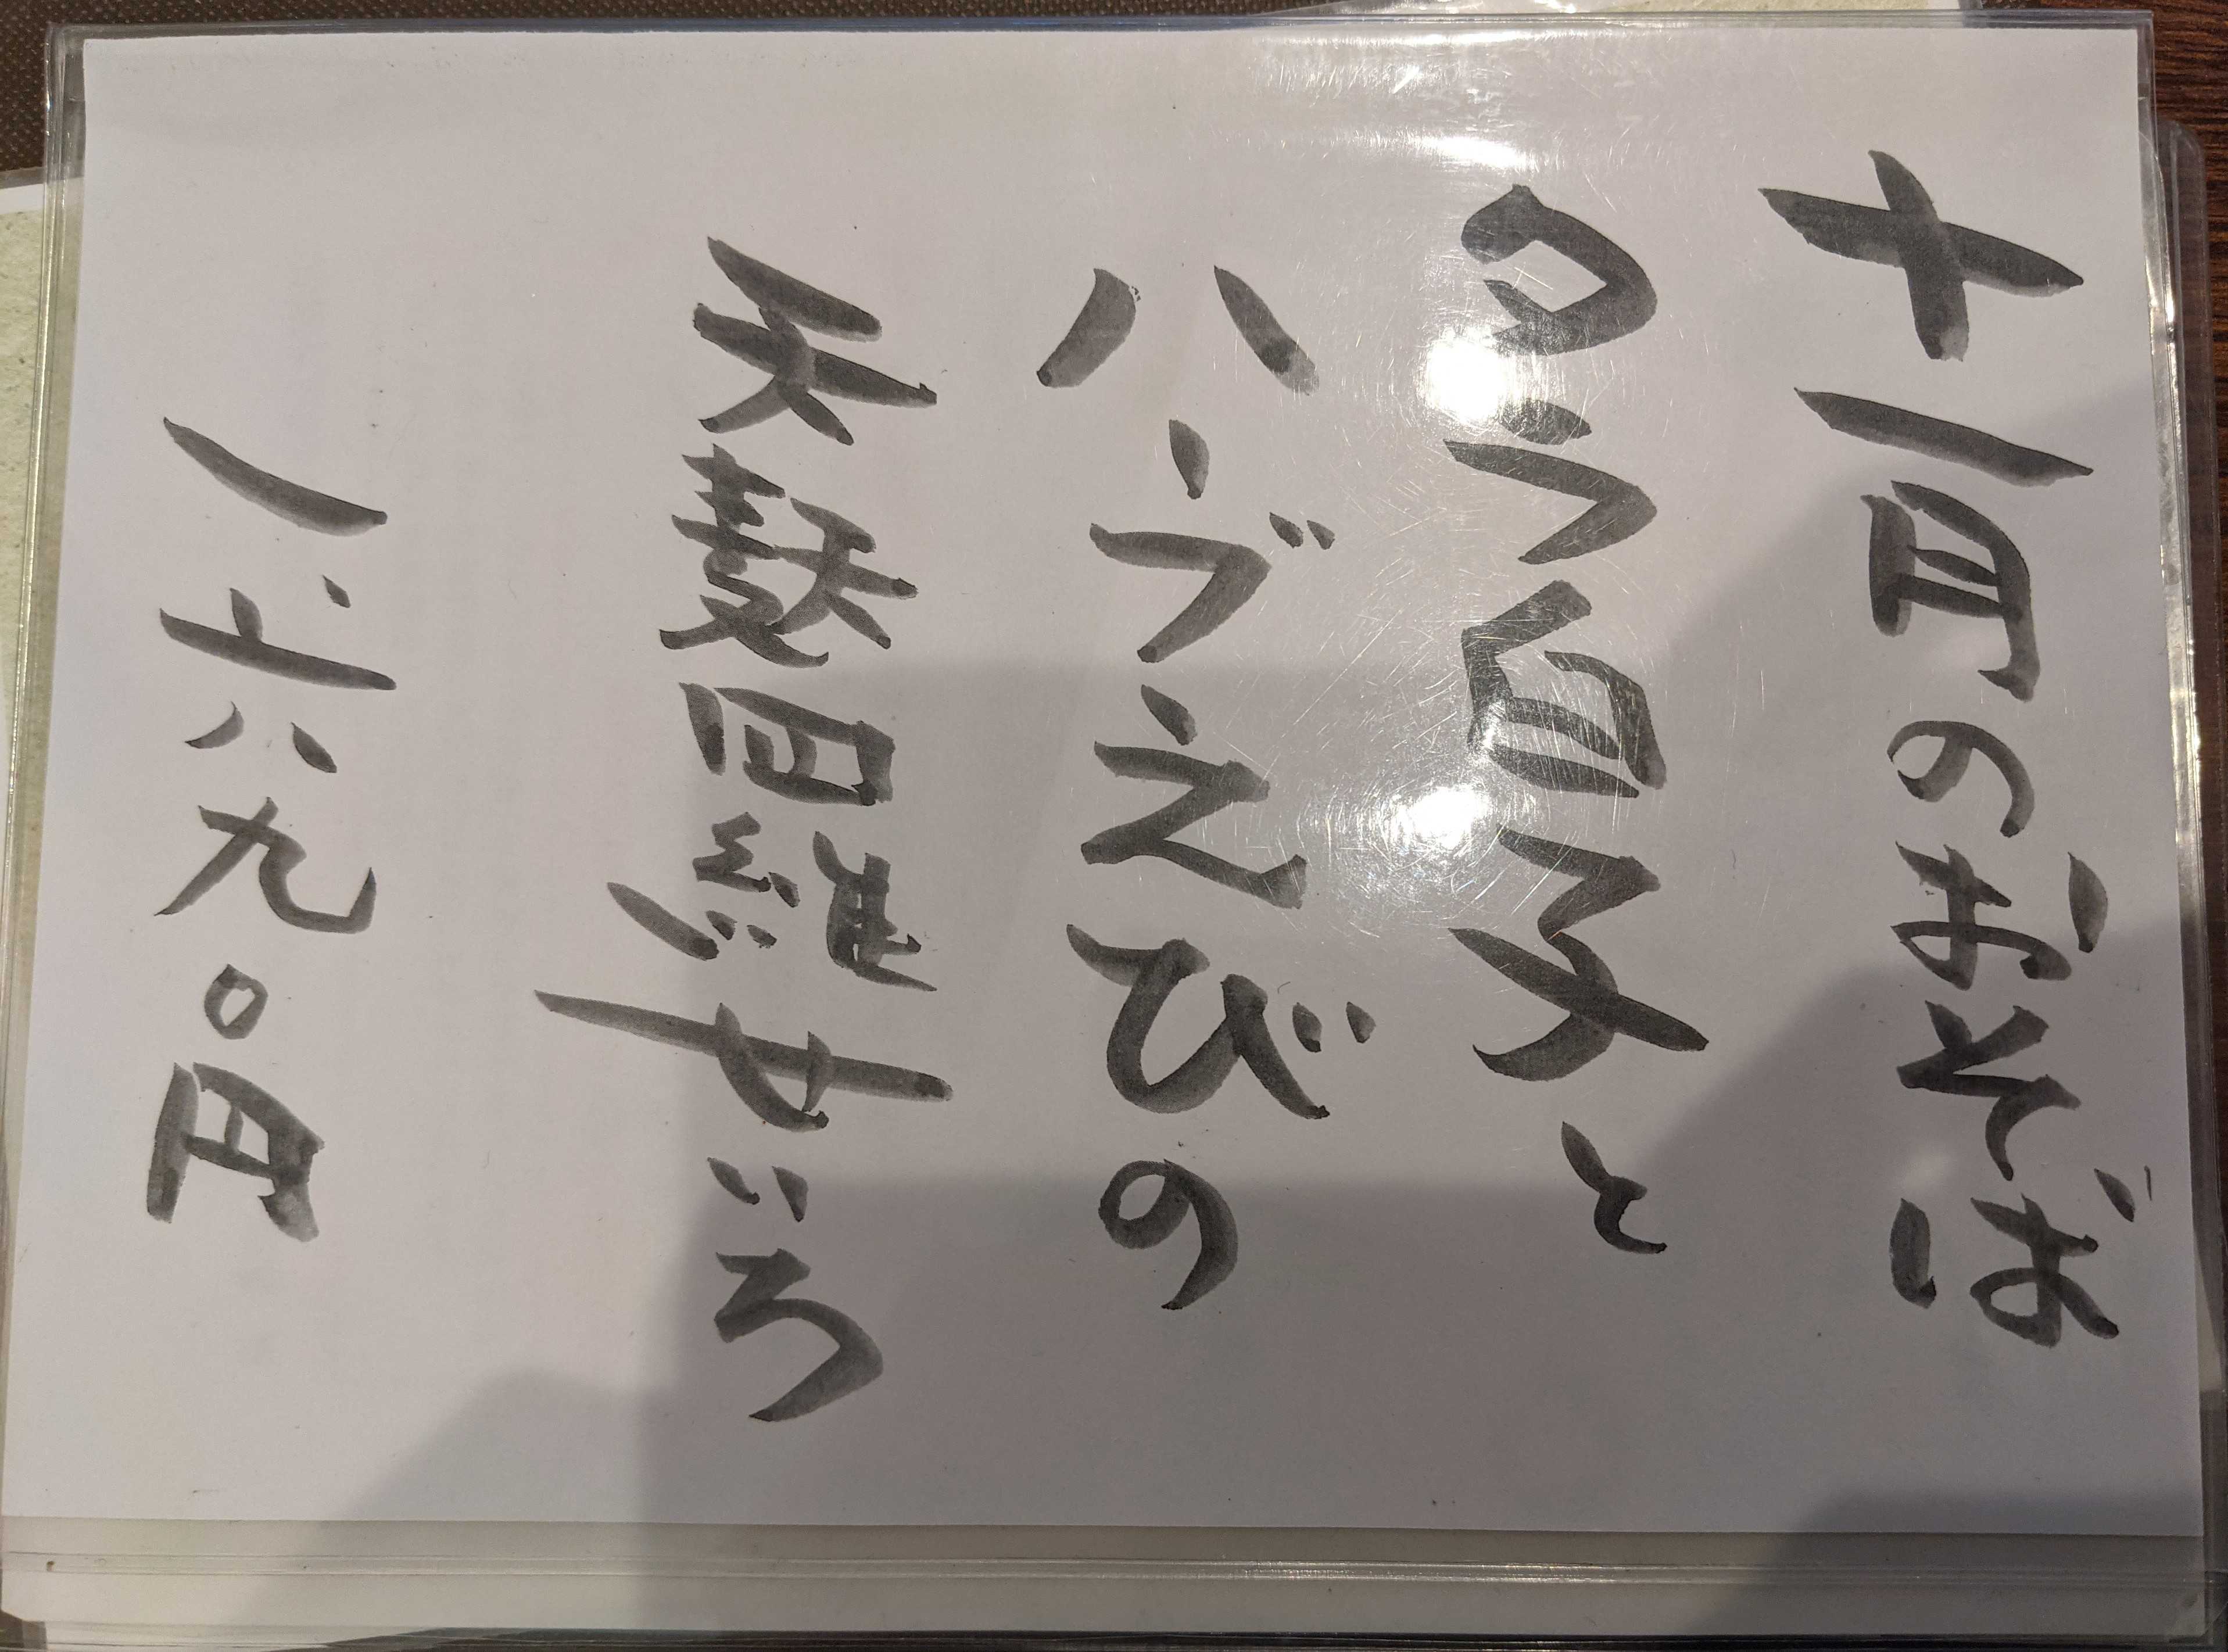 十一月のおそば
タラ白子と
ハーブえびの
天麩羅せいろ
一六九〇円